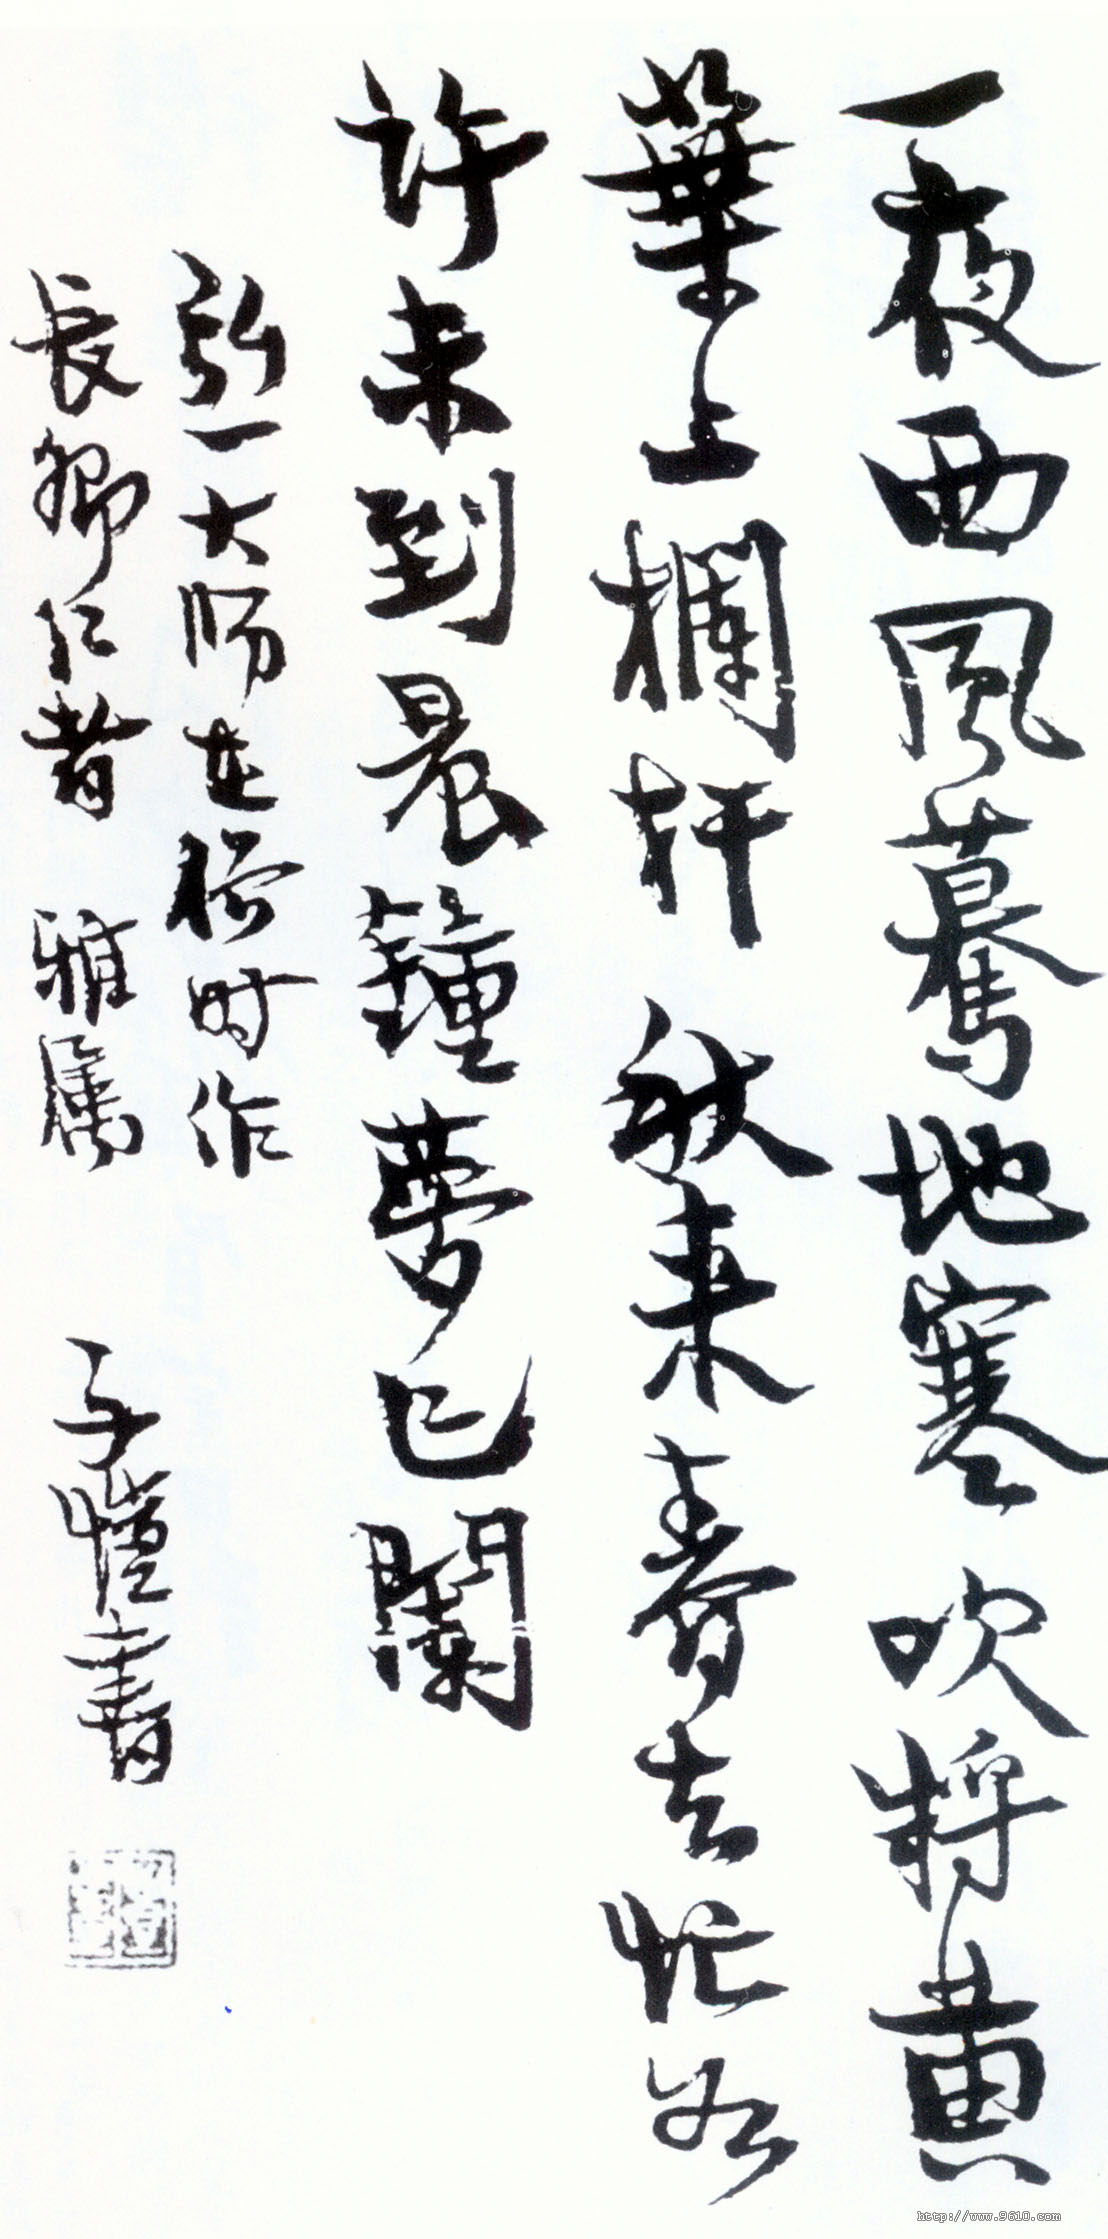 一夜西風驀地寒 吹將黄
葉上欄杆 秋来春去忙如
許未到晨鐘夢已闌
弘一大师在俗时作
長卿仁者 雅屬 子愷書
http://www.9610.com